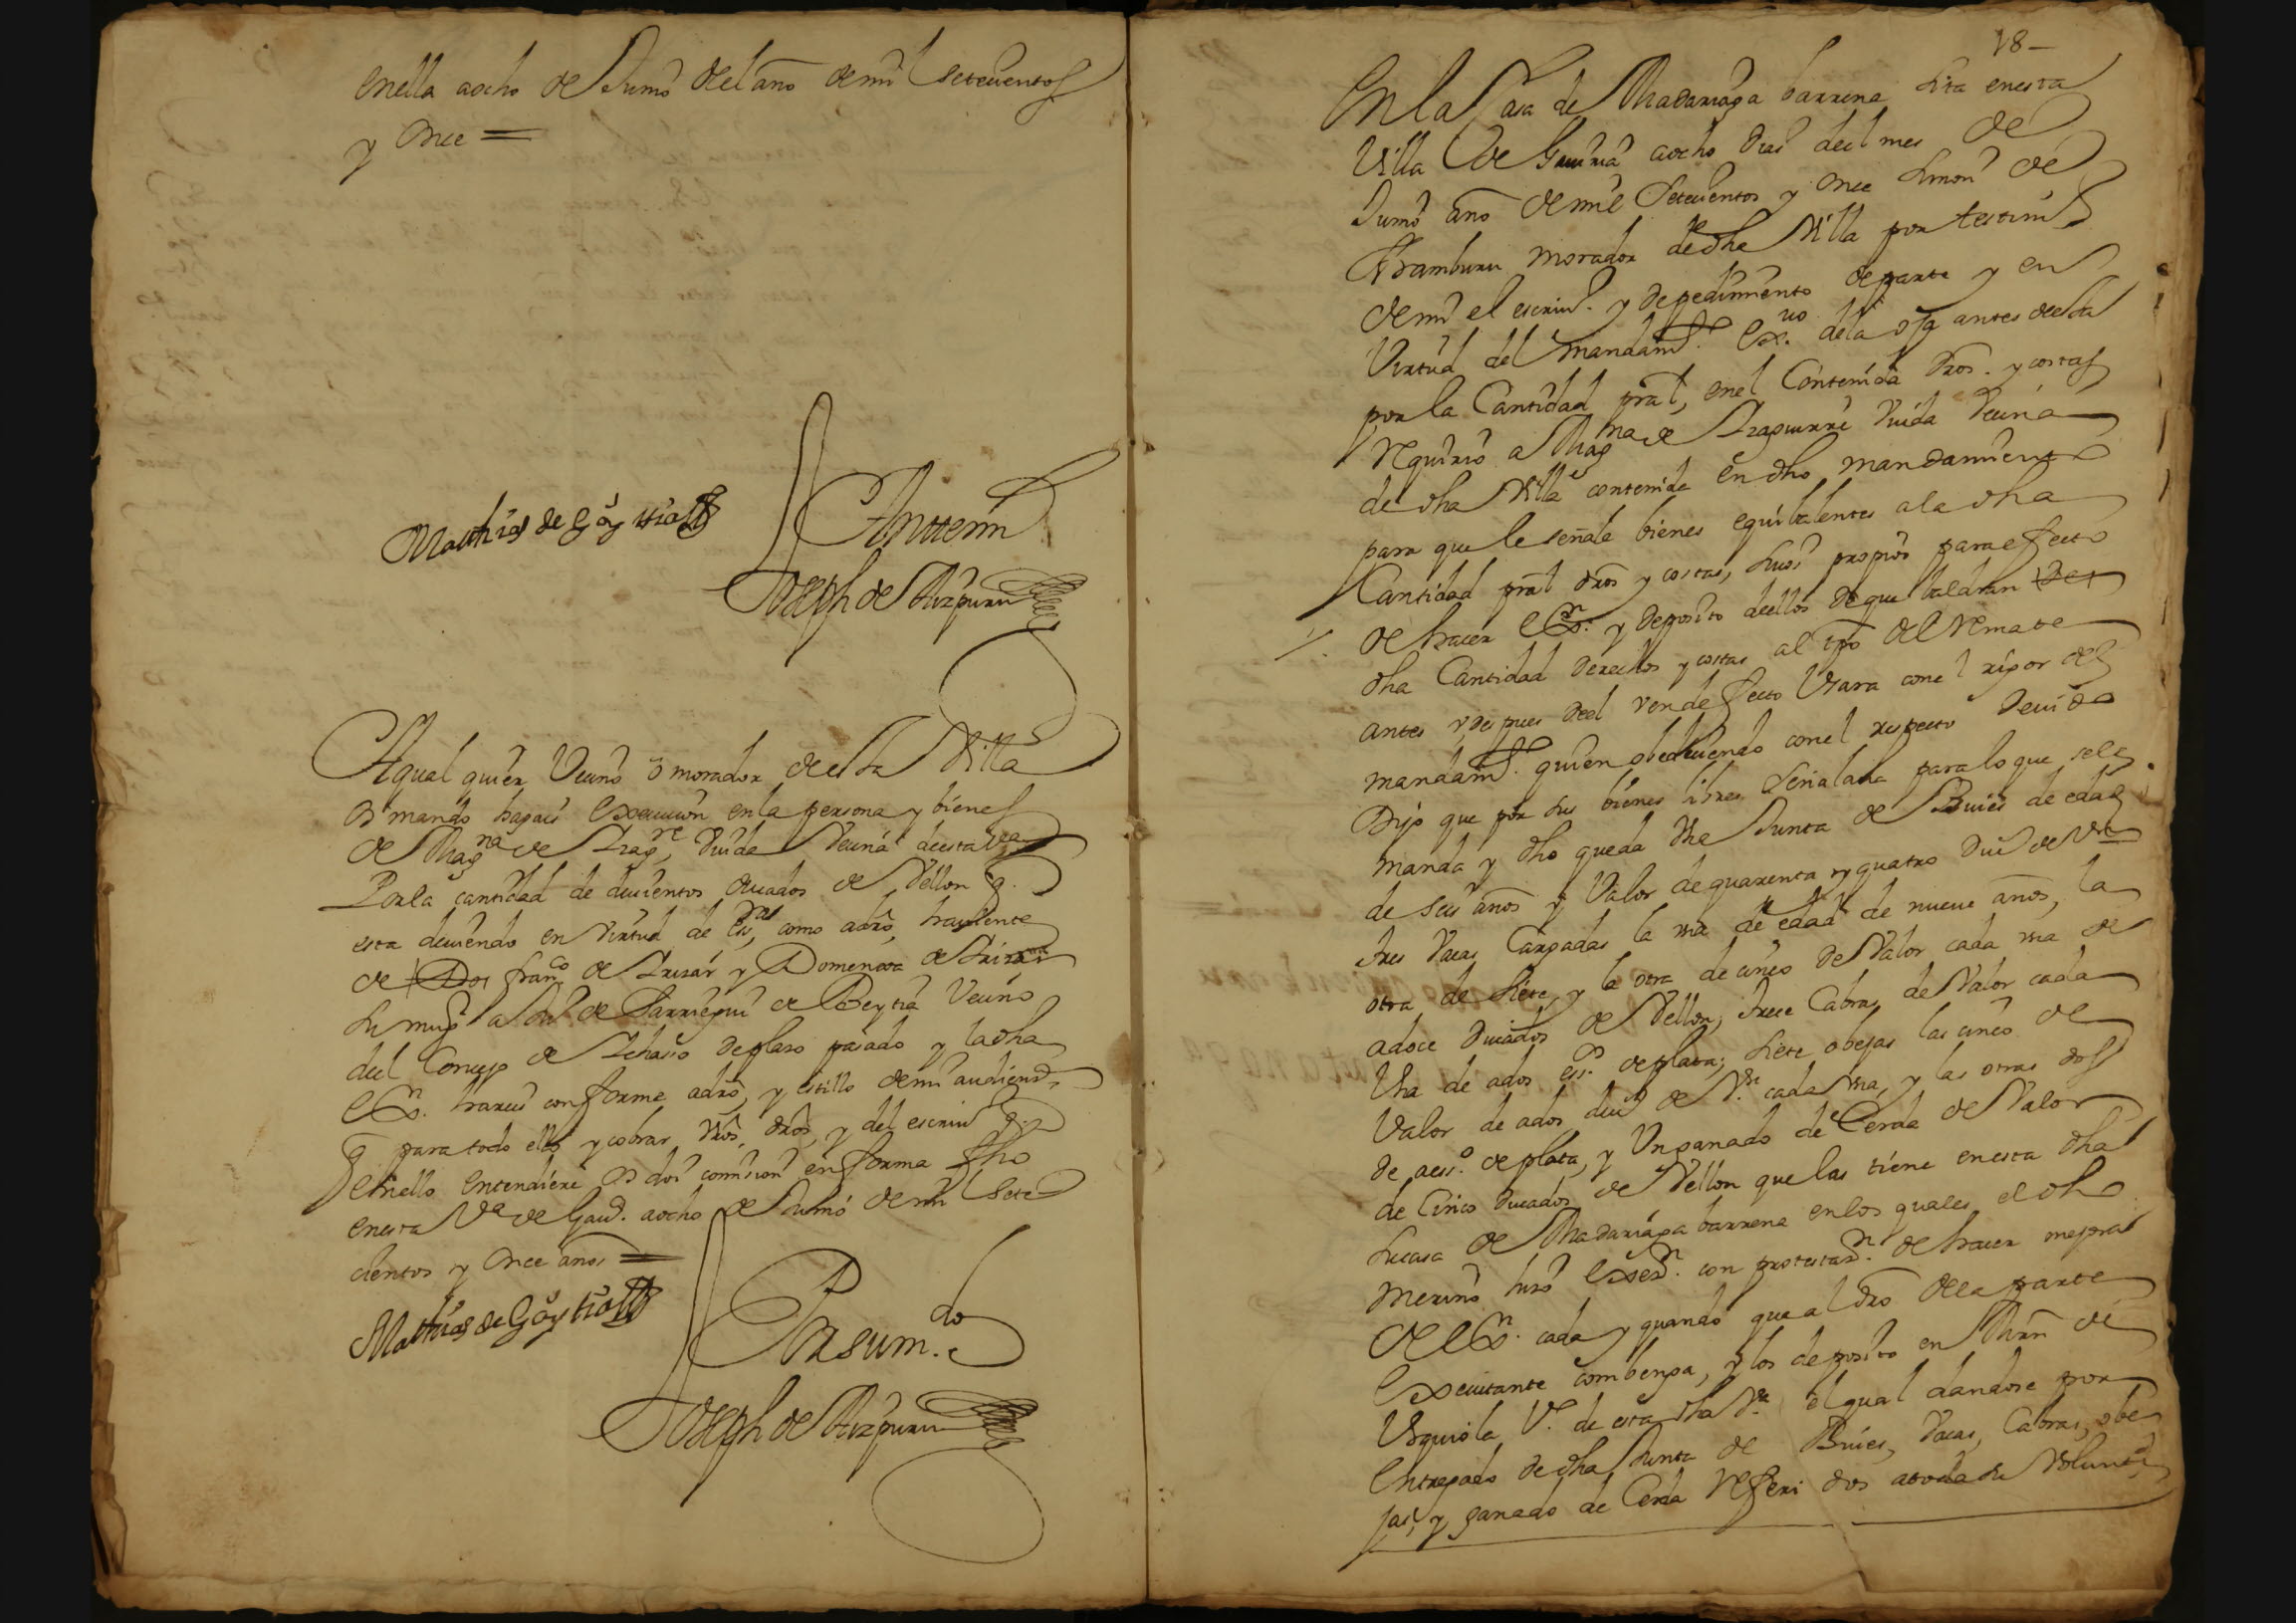 enella aocho de Junio del año de mil setecientos
y once =
Mathias de Goytia
Antte mi
Joseph de Aizpuru
A qual quier Vecino o morador de esta Villa
os mando hagais execucion en la persona y bienes
de Mag.na de Izag.re Viuda Vecina de esta V.a
Por la cantidad de ducientos ducados de Vellon q.
esta deviendo en Virtud de ess.ra, como adro, haviente
de Fran.co de Irizar y Domenica de Irizar
su mug.r a de Jarriegui de Beytia Vecino
del Concejo de Ichaso deplazo pasado y la dha
ex.on hareis conforme adro, y estillo de mi audiend.a
q para todo ello y cobrar Vros, dros, y del escriu.o q.
enello entendiere os doi comision en forma fho
enesta V.a de Gav.a aocho de Junio de mil sete
cientos y once años =
Mathias de Goytia
Por su m.do
Joseph de Aizpuru
18 –
En la Casa de Madariaga barrena sita enesta
Villa de Gauiria aocho dias del mes de
Junio año de mil Setecientos y once Simon de
Aramburu morador de dha Villa por testim.o
de mi el escriu.o y de pedimiento de parte y en
Virtud del mandam.to ex.uo de la oja antes de esta
por la Cantidad pral, enel Contenida dros. y costas
Requirio a Mag.na de Izaguirre Viuda Vecina
de dha Villa contenida en dho mandamiento
para que le señale bienes equibalentes a la dha
Cantidad pral dros y costas, suos propios para efecto
de hacer ex.on y deposito de ellos de que baldran
dha Cantidad derechos y costas al tpo del remate
antes y despues del y en defecto Usara con el rigor del
mandam.to quien obedeciendo con el respecto devido
Dijo que por sus bienes libres señalava para lo que se le
manda y dho queda Vna Junta de Buies de edad
de seis años y Valor de quarenta y quatro Du.s de V.n
tres Vacas Cargadas la vna de edad de nueve años, la
otra de siete, y la otra de cinco de Valor cada vna de
adoce Ducados de Vellon, trece Cabras de Valor cada
Vna de ados ess.s de plata; siete obejas las cinco de
Valor de ados duc.s de V.n cada vna, y las otras dos
de aess.o de plata, y Un ganado de Cerda de Valor
de Cinco Ducados de Vellon que las tiene enesta dha
su casa de Madariaga barrena en los quales el dho
merino hizo exse.on con protestaz.n de hacer mejora
de ex.on cada y quando que al dro de la parte
executante combenga, y los deposito en Mrn de
Urquiola V.o de esta dha V.a el qual dandose por
Entregado de dha Junta de Buies, Vacas, Cabras, obe
jas, y ganado de Cerda referi dos atoda su Volunta